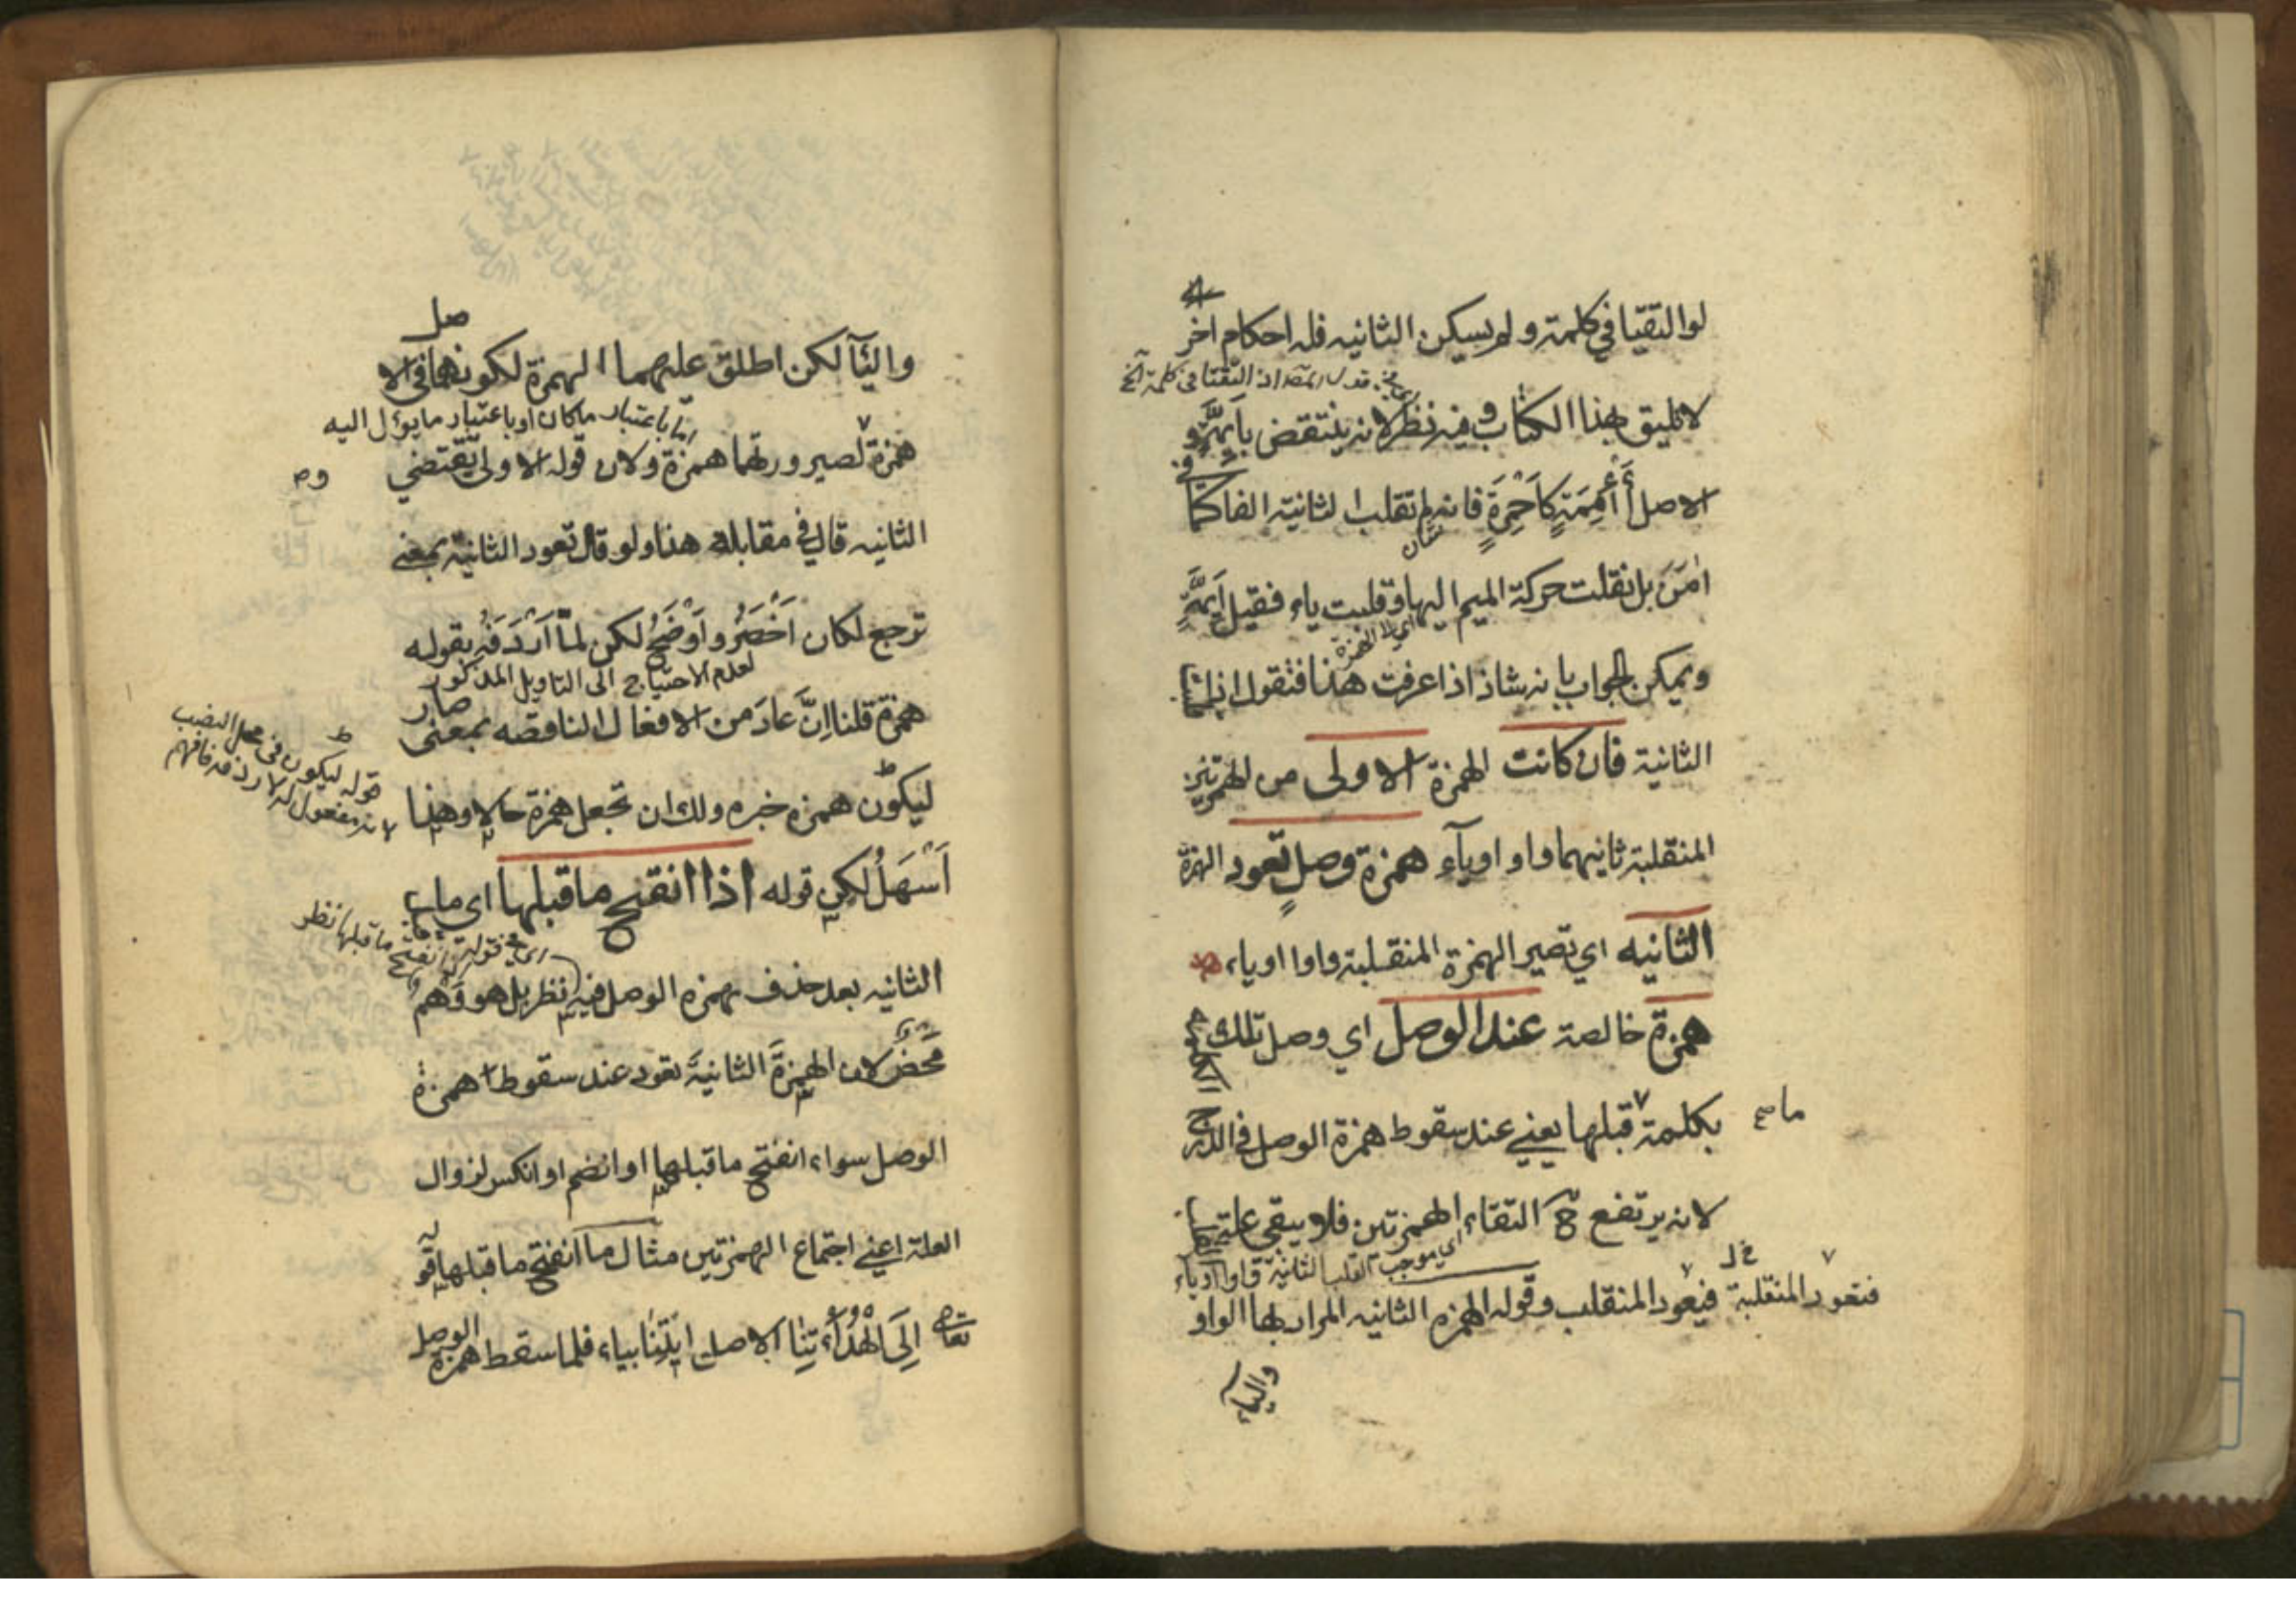 لو التقيا في كلمة ولم يسكن الثانيه فله احكام اخر
لا تليق بهذا الكتاب وفيه نظر لانه ينتقض بأيمة و
الاصل أأممة كاحمرة فانه لم تقلب الثانية الفا كما
امن بل نقلت حركة الميم اليها وقلبت ياء فقيل ايمة
اي الى الهمزة
ويمكن الجواب بانه شاذ اذا عرفت هذا فنقول اذا
الثانية فان كانت الهمزة الاولى من الهمزتين
المنقلبة ثانيهما واو او ياء همزة وصل تعود الهمزة
الثانيه اي تصير الهمزة المنقلبة واوا او ياء
همزة خالصة عند الوصل اي وصل تلك
بكلمة قبلها يعني عند سقوط همزة الوصل في الدرج
لانه يرتفع ح التقاء الهمزتين فلا يبقى علة
اي موجب القلب الثانية واوا او ياء
فتعود المنقلبة فيعود المنقلب وقوله الهمزه الثانيه المراد بها الواو
والياء
واليآ لكن اطلق عليهما الهمزة لكونهما في الا
صل
اما باعتبار ماكان او باعتبار ما يؤل اليه
همزة لصيرورتهما همزة ولان قوله الاولى يقتضي
الثانيه قال في مقابلة هذا ولو قال تعود الثانية بمعنى
ترجع لكان اخصر واوضح لكن لما اردفه بقوله
لعدم الاحتياج الى التاويل المذكور
همزة قلنا ان عاد من الافعال الناقصه بمعنى
صار
قوله ليكون في محل النصب
لانه مفعول له لاردفه فافهم
ليكون همزه خبره ولك ان تجعل همزة حالا وهذا
اسهل لكن قوله اذا انفتح ما قبلها اي ما
اي في قوله انفتح ما قبلها نظر
الثانيه بعد حذف همزه الوصل فيه نظر بل هو وهم
محض لان الهمزة الثانية تعود عند سقوط همزة
الوصل سواء انفتح ما قبلها او انضم او انكسر لزوال
العلة اعني اجتماع الهمزتين مثال ما انفتح ما قبلها قوله
تعالى الى الهدا ئتنا الاصل ايتنا بياء فلما سقط همزة
الوصل